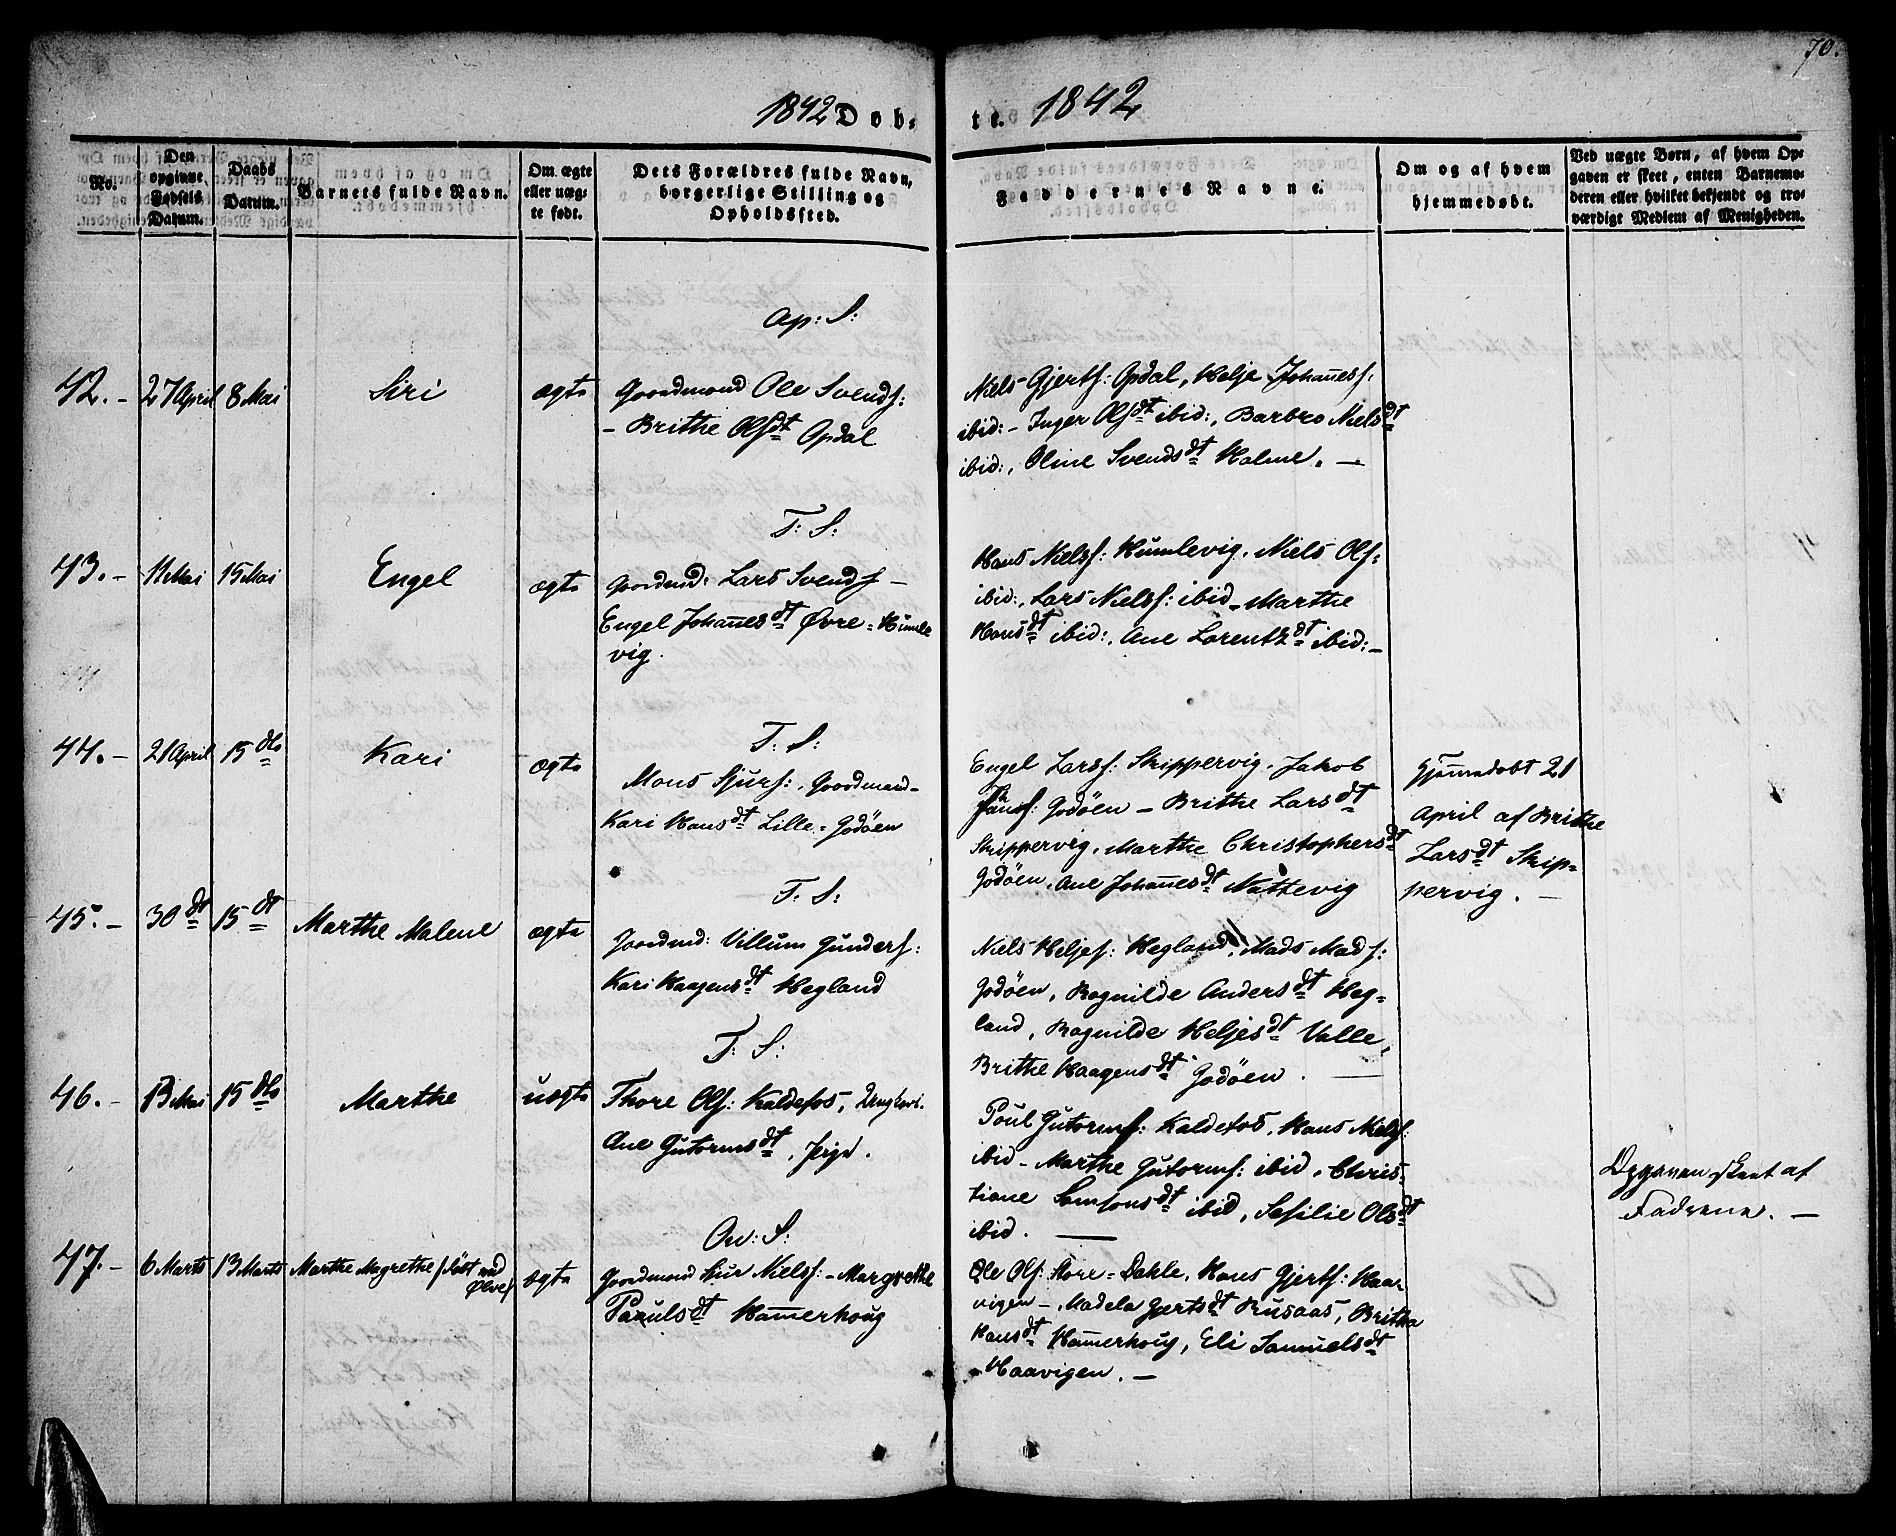 70.
1842 Døb- te. 1842
No.
Den opginne Fødsels Datum.
Daabs Datum.
Barnets fulde Navn.
Om ægte eller uæg- te født.
Dets Forældres fulde Navn, borgerlige Stilling og Opholdssted.
Faddernes Navne.
Om og af hvem hjemmedøbt.
Ved uægte Børn, af hvem Op- gaven er skeet, enten Barnemo- deren eller hvilket bekjendt og tro- værdigt Medlem af Menigheden.
Op: S:
42. - 27 April 8 Mai Siri ægte Goordmand Ole Svends:
- Brithe Olsdt Opdal
Niels Gjerts: Opdal, Helje Johaness:
ibid: - Inger Olsdt ibid:, Barbro Nielsdt
ibid:, Oline Svendsdt Holme. -
T: S:
43. - 11 Mai 15 Mai Engel ægte Goordmd: Lars Svends -
Engel Johanesdt Øvre-Humle
vig.
Hans Nielss: Humlevig, Niels Ols:
ibid:, Lars Nielss: ibid - Marthe
Hansdt ibid:, Ane Lorentzdt ibid: -
T: S:
44. - 21 April 15 do Kari ægte Mons Sjurs:, Goordmand -
Kari Hansdt Lille-Godøen
Engel Larss: Skippervig, Jakob
Godøen - Brithe Larsdt
Skippervig, Marthe Christophersdt
Godøen, Ane Johanesdt Nattevig
Hjemmedøbt 21
April af Brithe
Larsdt Skip-
pervig. -
T: S:
45. - 30 dt 15 dt Marthe Malene ægte Goordmd: Villum Gunders:
Kari Haagensdt Hegland
Niels Heljes: Hegland, Mads Mads:
Godøen, Ragnilde Andersdt Heg-
land, Ragnilde Heljesdt Valle,
Brithe Haagensdt Godøen.
T: S:
46. - 13 Mai 15 do Marthe uægte Thore Ols: Kaldefos, Ungkarl.
Ane Gutormsdt, Pige.
Poul Gutorms: Kaldefos, Hans Niels:
ibid - Marthe Gutorms: ibid, Chris-
tiane Samsonsdt ibid, Sesilie Olsdt
ibid.
Opgaven skeet af
Faderen. -
On: S:
47. - 6 Marts 13 Marts Marthe Magrethe /døbt ved
Ølve/ ægte Goordmand Siur Nielss: - Margrethe
Paaulsdt Hamerhoug
Ole Ols: Store-Dahle, Hans Gjerts: Haa-
vigen - Madela Gjertsdt Rusaas, Britha
Hansdt Hamerhoug, Eli Samuelsdt
Haavigen. -